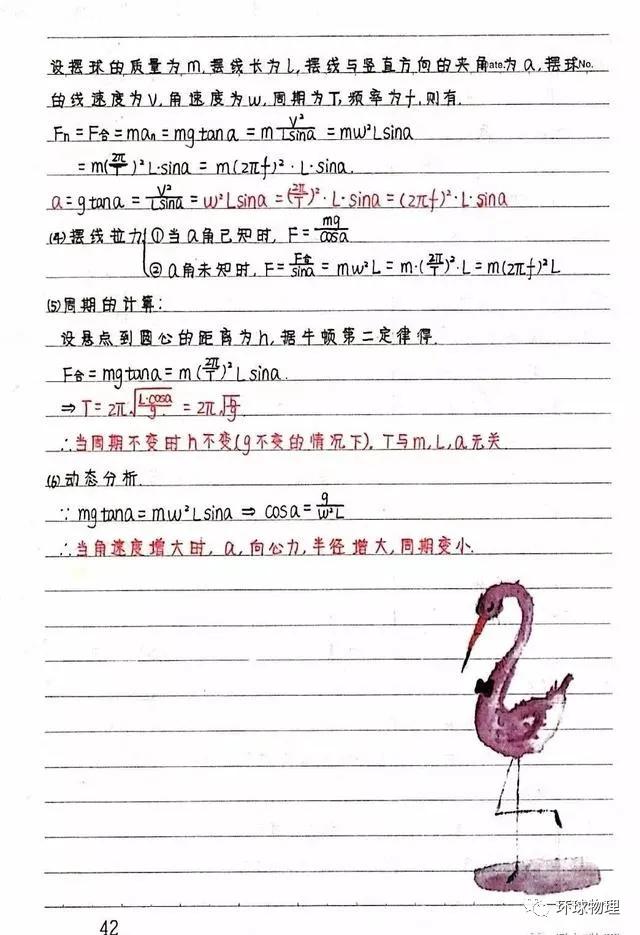 设摆球的质量为m,摆线长为L,摆线与竖直方向的夹角ate.为a,摆球No.
的线速度为V,角速度为w,周期为T,频率为f,则有.
Fn=F合=man=mgtana=m\frac{V²}{Lsina}=mw²Lsina
=m(\frac{2π}{T})²L·sina=m(2πf)²·L·sina.
a=gtana=\frac{V²}{Lsina}=w²Lsina=(\frac{2π}{T})²·L·sina=(2πf)²·L·sina
(4)摆线拉力{①当a角已知时,F=\frac{mg}{cosa}
②a角未知时,F=\frac{F合}{sina}=mw²L=m·(\frac{2π}{T})²·L=m(2πf)²L
(5)周期的计算:
设悬点到圆心的距离为h,据牛顿第二定律得.
F合=mgtana=m(\frac{2π}{T})²Lsina.
⇒T=2π√\frac{L·cosa}{g}=2π√\frac{h}{g}.
∴当周期不变时h不变(g不变的情况下),T与m,L,a无关.
(6)动态分析.
∵mgtana=mw²Lsina⇒cosa=\frac{g}{w²L}
∴当角速度增大时,a,向心力,半径增大,周期变小.
环球物理
42